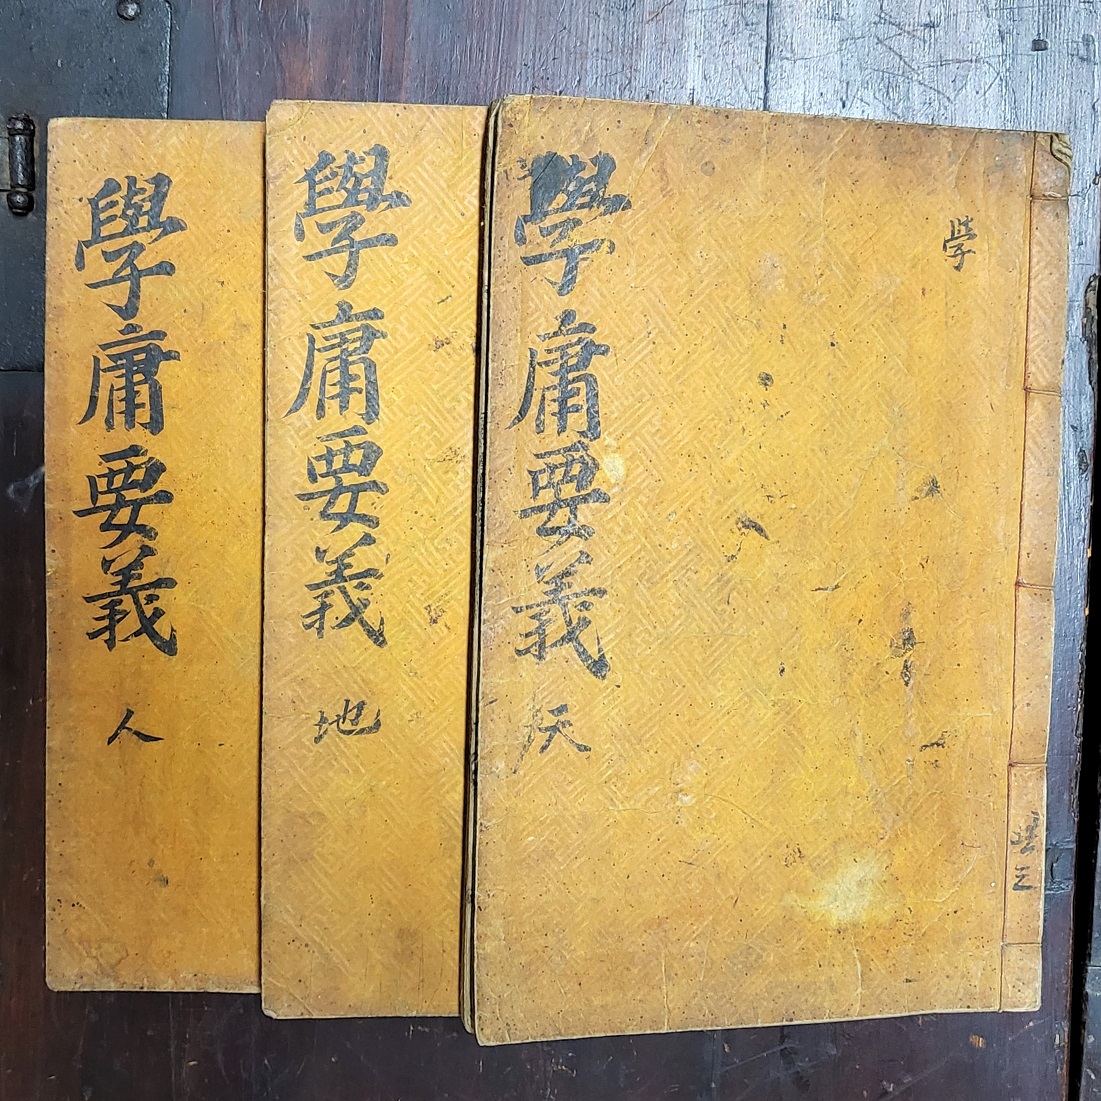 學庸要義 天
學
共三
學庸要義 地
學庸要義 人